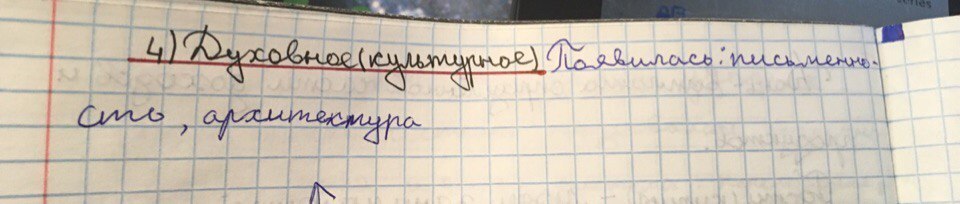 4) Духовное (культурное) Появилась: письменно-
сть, архитектура